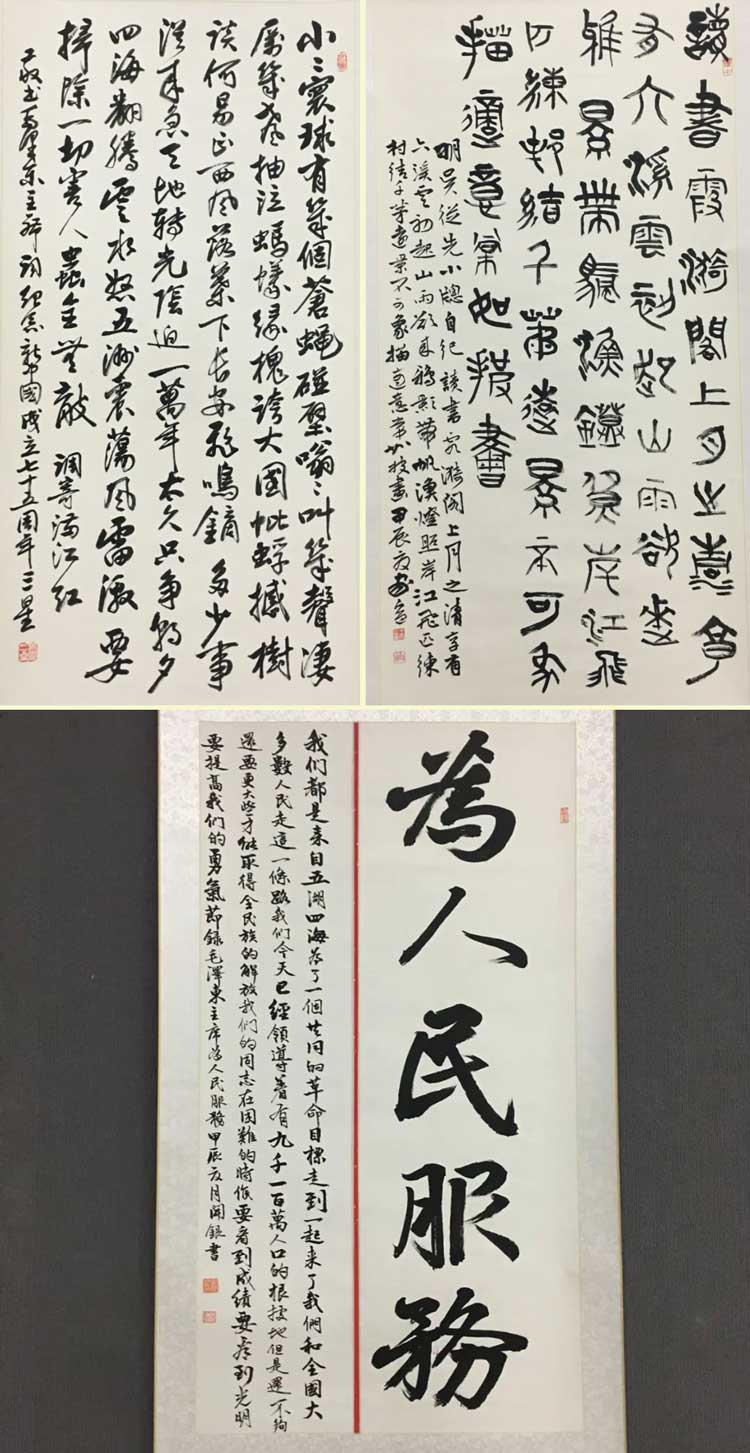 小〻寰球有幾個蒼蠅碰壁嗡〻叫幾聲淒
厲幾聲抽泣螞蟻緣槐誇大國蚍蜉撼樹
談何易正西風落葉下長安飛鳴鏑多少事
從來急天地轉光陰迫一萬年太久只爭朝夕
四海翻騰雲水怒五洲震蕩風雷激要
掃除一切害人蟲全無敵 調寄滿江紅
敬書毛澤東主席詞紀念新中國成立七十五周年三星
讀書霞漪閣上月之清享
有六溪雲初起山雨欲來
鴉景帶帆漁鐙照岸江飛
匹練村結千茅遠景不可象
描適意常如披畫
明吳從先小窗自紀讀書霞漪閣上月之清享有
六溪雲初起山雨欲來鴉影帶帆漁燈照岸江飛匹練
村結千茅遠景不可象描適意常如披畫甲辰夏
為人民服務
我们都是來自五湖四海為了一個共同的革命目標走到一起來了我們和全國大
多數人民走這一條路我们今天已經領導著有九千一百萬人口的根據地但是還不夠
還要更大些才能取得全民族的解放我们的同志在困難的時候要看到成績要看到光明
要提高我们的勇氣節錄毛澤東主席為人民服務甲辰夏月開銀書